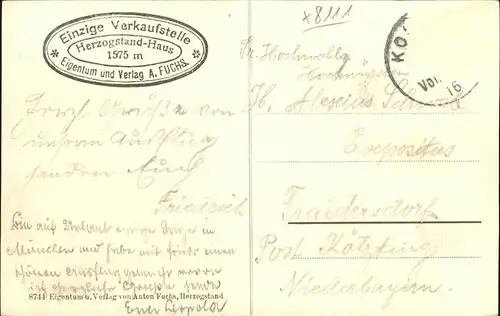 Einzige Verkaufstelle
Herzogstand-Haus
1575 m
* Eigentum und Verlag A. FUCHS. *
x 8111
KO
Vor.
16
Sr. Hochwohlg
Hochwürden
H. Alexius
Expositus
Traidersdorf
Post Kötzting
Niederbayern.
Herzl. Grüße von
unserm Ausflug
senden Euch
Friedrich
Bin auf Urlaub einige Tage in
München und habe mit Friedr. einen
schönen Ausflug gemacht wovon
ich herzliche Grüße sende
Euer Leopold
8744 Eigentum u. Verlag von Anton Fuchs, Herzogstand